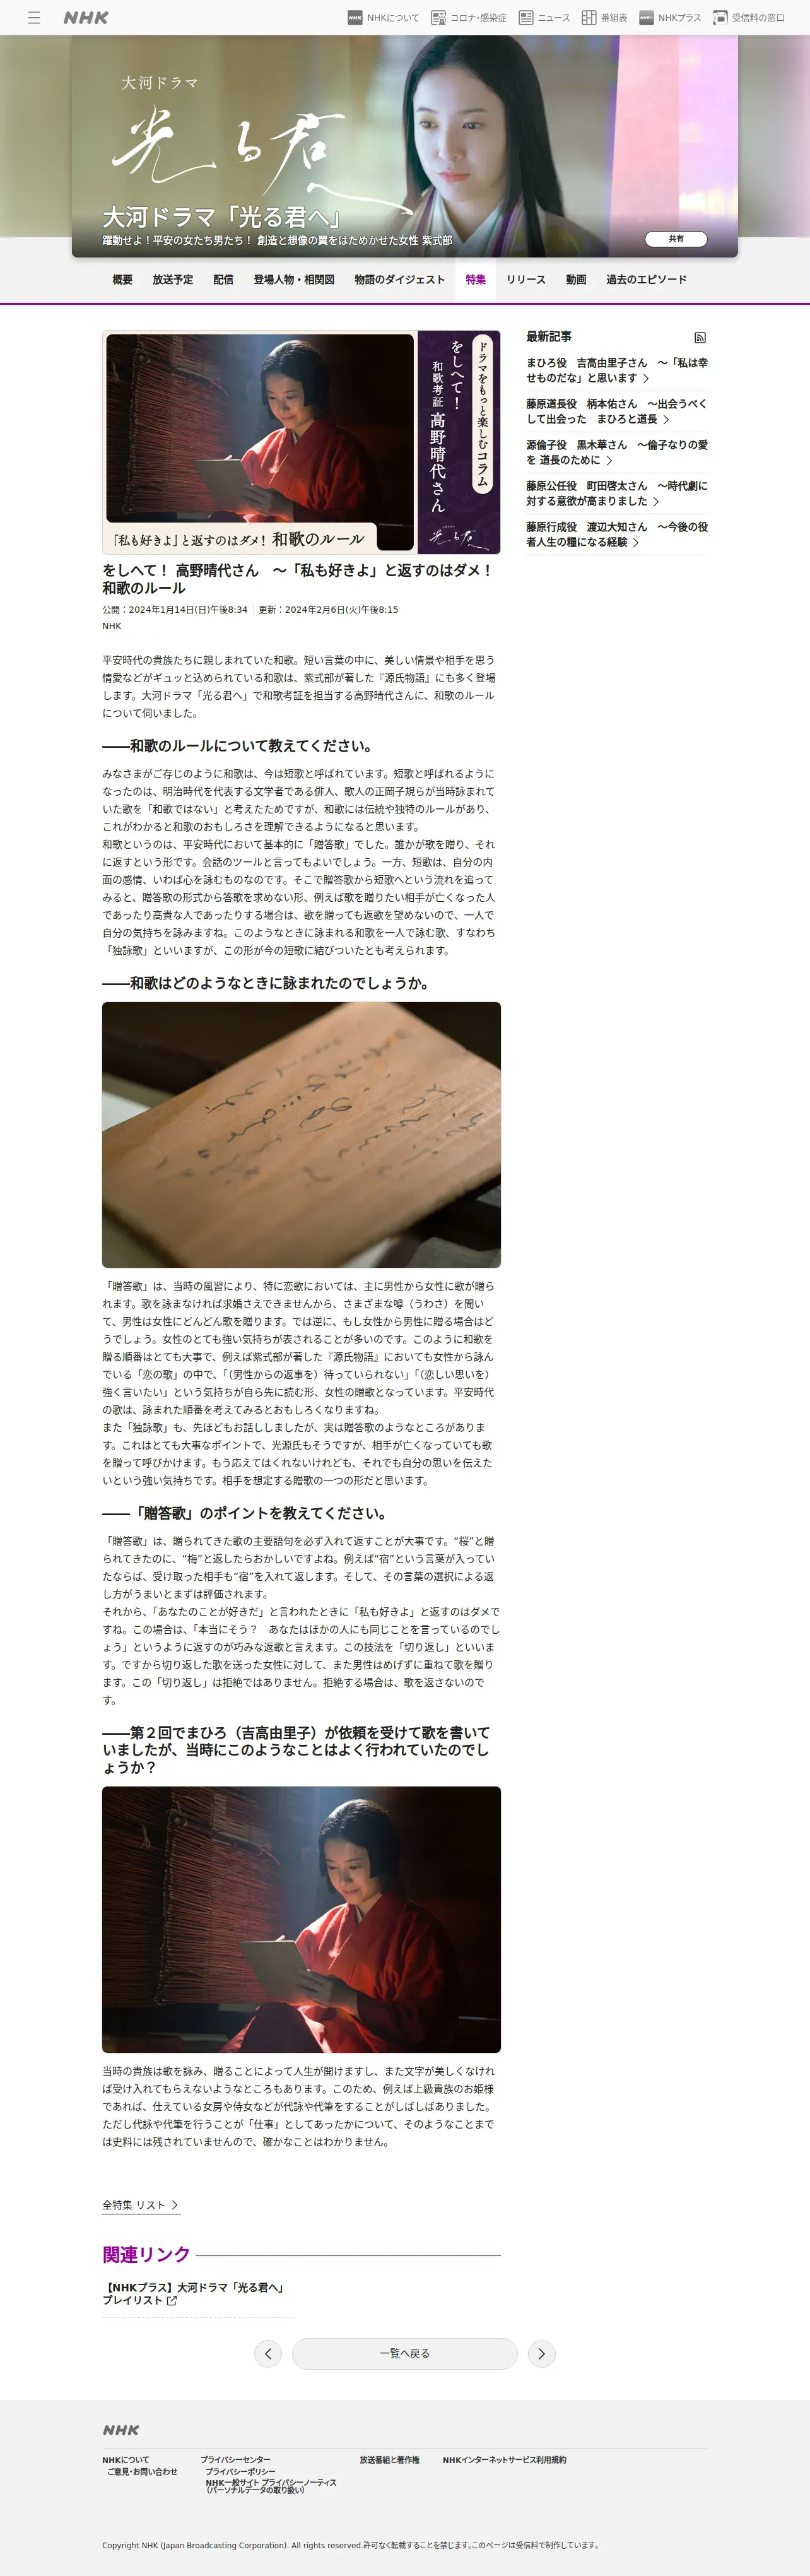 NHK
NHKについて
コロナ・感染症
ニュース
番組表
NHKプラス
受信料の窓口
大河ドラマ
光る君へ
大河ドラマ「光る君へ」
躍動せよ！平安の女たち男たち！ 創造と想像の翼をはためかせた女性 紫式部
共有
概要
放送予定
配信
登場人物・相関図
物語のダイジェスト
特集
リリース
動画
過去のエピソード
ドラマをもっと楽しむコラム
をしへて！
和歌考証 高野晴代さん
「私も好きよ」と返すのはダメ！ 和歌のルール
をしへて！ 高野晴代さん　～「私も好きよ」と返すのはダメ！
和歌のルール
公開：2024年1月14日(日)午後8:34
更新：2024年2月6日(火)午後8:15
NHK
平安時代の貴族たちに親しまれていた和歌。短い言葉の中に、美しい情景や相手を思う
情愛などがギュッと込められている和歌は、紫式部が著した『源氏物語』にも多く登場
します。大河ドラマ「光る君へ」で和歌考証を担当する高野晴代さんに、和歌のルール
について伺いました。
――和歌のルールについて教えてください。
みなさまがご存じのように和歌は、今は短歌と呼ばれています。短歌と呼ばれるように
なったのは、明治時代を代表する文学者である俳人、歌人の正岡子規らが当時詠まれて
いた歌を「和歌ではない」と考えたためですが、和歌には伝統や独特のルールがあり、
これがわかると和歌のおもしろさを理解できるようになると思います。
和歌というのは、平安時代において基本的に「贈答歌」でした。誰かが歌を贈り、それ
に返すという形です。会話のツールと言ってもよいでしょう。一方、短歌は、自分の内
面の感情、いわば心を詠むものなのです。そこで贈答歌から短歌へという流れを追って
みると、贈答歌の形式から答歌を求めない形、例えば歌を贈りたい相手が亡くなった人
であったり高貴な人であったりする場合は、歌を贈っても返歌を望めないので、一人で
自分の気持ちを詠みますね。このようなときに詠まれる和歌を一人で詠む歌、すなわち
「独詠歌」といいますが、この形が今の短歌に結びついたとも考えられます。
――和歌はどのようなときに詠まれたのでしょうか。
「贈答歌」は、当時の風習により、特に恋歌においては、主に男性から女性に歌が贈ら
れます。歌を詠まなければ求婚さえできませんから、さまざまな噂（うわさ）を聞い
て、男性は女性にどんどん歌を贈ります。では逆に、もし女性から男性に贈る場合はど
うでしょう。女性のとても強い気持ちが表されることが多いのです。このように和歌を
贈る順番はとても大事で、例えば紫式部が著した『源氏物語』においても女性から詠ん
でいる「恋の歌」の中で、「（男性からの返事を）待っていられない」「（恋しい思いを）
強く言いたい」という気持ちが自ら先に読む形、女性の贈歌となっています。平安時代
の歌は、詠まれた順番を考えてみるとおもしろくなりますね。
また「独詠歌」も、先ほどもお話ししましたが、実は贈答歌のようなところがありま
す。これはとても大事なポイントで、光源氏もそうですが、相手が亡くなっていても歌
を贈って呼びかけます。もう応えてはくれないけれども、それでも自分の思いを伝えた
いという強い気持ちです。相手を想定する贈歌の一つの形だと思います。
――「贈答歌」のポイントを教えてください。
「贈答歌」は、贈られてきた歌の主要語句を必ず入れて返すことが大事です。“桜”と贈
られてきたのに、“梅”と返したらおかしいですよね。例えば“宿”という言葉が入ってい
たならば、受け取った相手も“宿”を入れて返します。そして、その言葉の選択による返
し方がうまいとまずは評価されます。
それから、「あなたのことが好きだ」と言われたときに「私も好きよ」と返すのはダメで
すね。この場合は、「本当にそう？　あなたはほかの人にも同じことを言っているのでし
ょう」というように返すのが巧みな返歌と言えます。この技法を「切り返し」といいま
す。ですから切り返した歌を送った女性に対して、また男性はめげずに重ねて歌を贈り
ます。この「切り返し」は拒絶ではありません。拒絶する場合は、歌を返さないので
す。
――第２回でまひろ（吉高由里子）が依頼を受けて歌を書いて
いましたが、当時にこのようなことはよく行われていたのでし
ょうか？
当時の貴族は歌を詠み、贈ることによって人生が開けますし、また文字が美しくなけれ
ば受け入れてもらえないようなところもあります。このため、例えば上級貴族のお姫様
であれば、仕えている女房や侍女などが代詠や代筆をすることがしばしばありました。
ただし代詠や代筆を行うことが「仕事」としてあったかについて、そのようなことまで
は史料には残されていませんので、確かなことはわかりません。
全特集 リスト
関連リンク
【NHKプラス】大河ドラマ「光る君へ」
プレイリスト
一覧へ戻る
最新記事
まひろ役　吉高由里子さん　～「私は幸
せものだな」と思います
藤原道長役　柄本佑さん　～出会うべく
して出会った　まひろと道長
源倫子役　黒木華さん　～倫子なりの愛
を 道長のために
藤原公任役　町田啓太さん　～時代劇に
対する意欲が高まりました
藤原行成役　渡辺大知さん　～今後の役
者人生の糧になる経験
NHK
NHKについて
ご意見・お問い合わせ
プライバシーセンター
プライバシーポリシー
NHK一般サイト プライバシーノーティス
（パーソナルデータの取り扱い）
放送番組と著作権
NHKインターネットサービス利用規約
Copyright NHK (Japan Broadcasting Corporation). All rights reserved.許可なく転載することを禁じます。このページは受信料で制作しています。